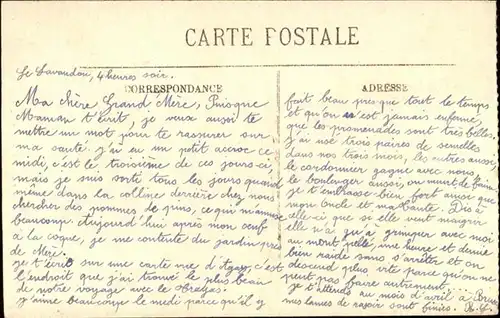 CARTE POSTALE
Le Lavandou, 4 heures soir.
CORRESPONDANCE
Ma chère Grand Mère, Puisque
Maman t'écrit, je veux aussi te
mettre un mot pour te rassurer sur
ma santé. j'ai eu un petit accroc ce
midi, c'est le troisième de ces jours-ci
mais je suis sorti tous les jours quand
même dans la colline derrière chez nous
chercher des pommes de pins, ce qui m'amuse
beaucoup. Aujourd'hui après mon oeuf
à la coque, je me contente du jardin près
de Mère.
je t'écris sur une carte vue d'Agay, c'est
l'endroit que j'ai trouvé le plus beau
de notre voyage avec le
j'aime beaucoup le medi parce qu'il y
ADRESSE
fait beau presque tout le temps
et qu'on n'est jamais enfermé,
que les promenades sont très belles.
j'ai usé trois paires de semelles
dans nos trois mois, les autres aussi
le cordonnier gagne avec nous,
le boulanger aussi, on meurt de faim
je t'embrasse bien fort ainsi que
mon oncle et ma tante. Dis à
celle-ci que si elle veut maigrir
elle n'a qu'à grimper avec moi
au mont pelle, une heure et demie
bien raide sans s'arrêter et on
descend plus vite parce qu'on ne
peut pas faire autrement.
je t'attends au mois d'avril à
mes lames de rasoir sont finies.